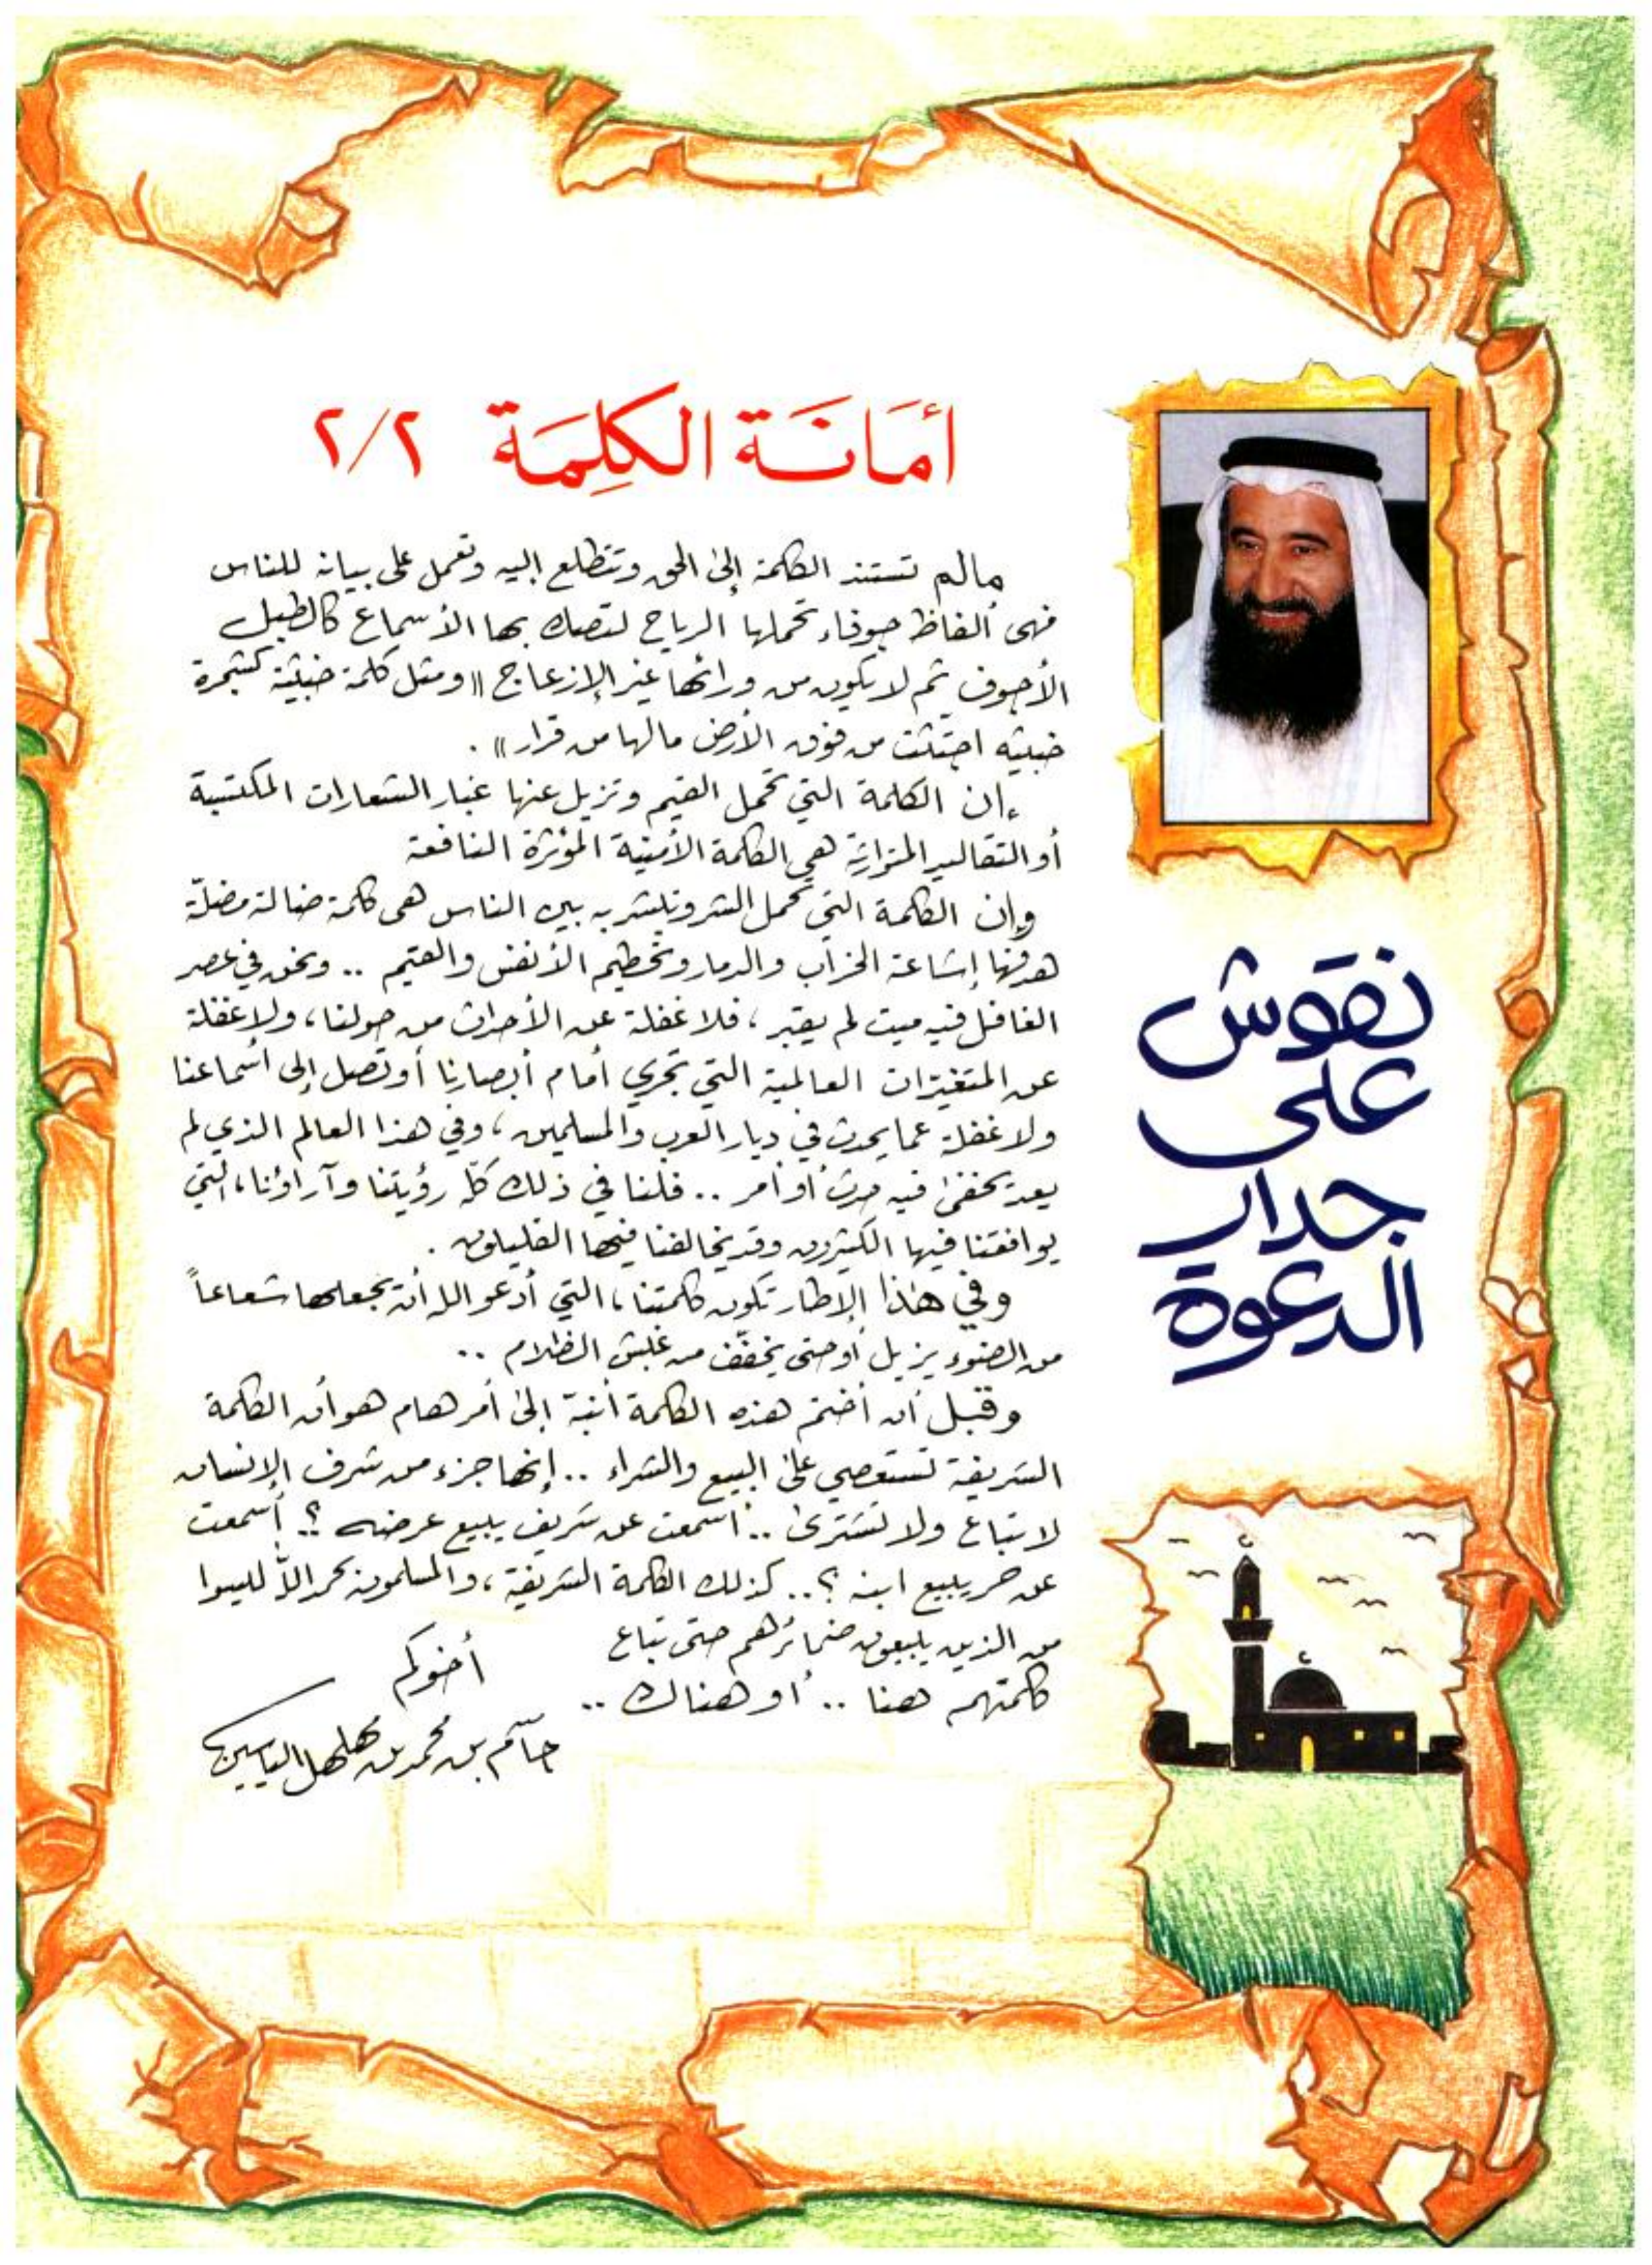 أمَانَة الكَلِمَة ٢/٢
مالم تستند الكلمة إلى الحق وتتطلع إليه وتعمل على بيانه للناس
فهى ألفاظ جوفاء تحملها الرياح لتصك بها الأسماع كالطبل
الأجوف ثم لا يكون من ورائها غير الإزعاج "ومثل كلمة خبيثة كشجرة
خبيثه اجتثت من فوق الأرض مالها من قرار".
إن الكلمة التي تحمل القيم وتزيل عنها غبار الشعارات المكتسبة
أو التقاليد المتوارثة هي الكلمة الأمينة المؤثرة النافعة
وإن الكلمة التي تحمل الشر وتبشر به بين الناس هى كلمة ضالة مضلّة
هدفها إشاعة الخراب والدمار وتحطيم الأنفس والقيم .. ونحن في عصر
الغافل فيه ميت لم يقبر، فلا غفلة عن الأحداث من حولنا، ولا غفلة
عن المتغيرات العالمية التي تجري أمام أبصارنا أو تصل إلى أسماعنا
ولا غفلة عما يحدث في ديار العرب والمسلمين، وفي هذا العالم الذي لم
يعد يخفى فيه حدث أو أمر .. فلنا في ذلك كله رؤيتنا وآراؤنا، التي
يوافقنا فيها الكثيرون وقد يخالفنا فيها القليلون.
وفي هذا الإطار تكون كلمتنا، التي أدعو الله أن يجعلها شعاعاً
من الضوء يزيل أو حتى يخفّف من غبش الظلام ..
وقبل أن أختم هذه الكلمة أنبّه إلى أمر هام هو أن الكلمة
الشريفة تستعصي على البيع والشراء .. إنها جزء من شرف الإنسان
لا تباع ولا تشترى .. أسمعت عن شريف يبيع عرضه؟ أسمعت
عن حر يبيع ابنه؟.. كذلك الكلمة الشريفة، والمسلمون بحمد الله ليسوا
من الذين يبيعون ضمائرهم حتى تباع
كلمتهم هنا .. أو هناك ..
أخوكم
جاسم بن محمد بن مهلهل الياسين
نقوش
على
جدار
الدعوة